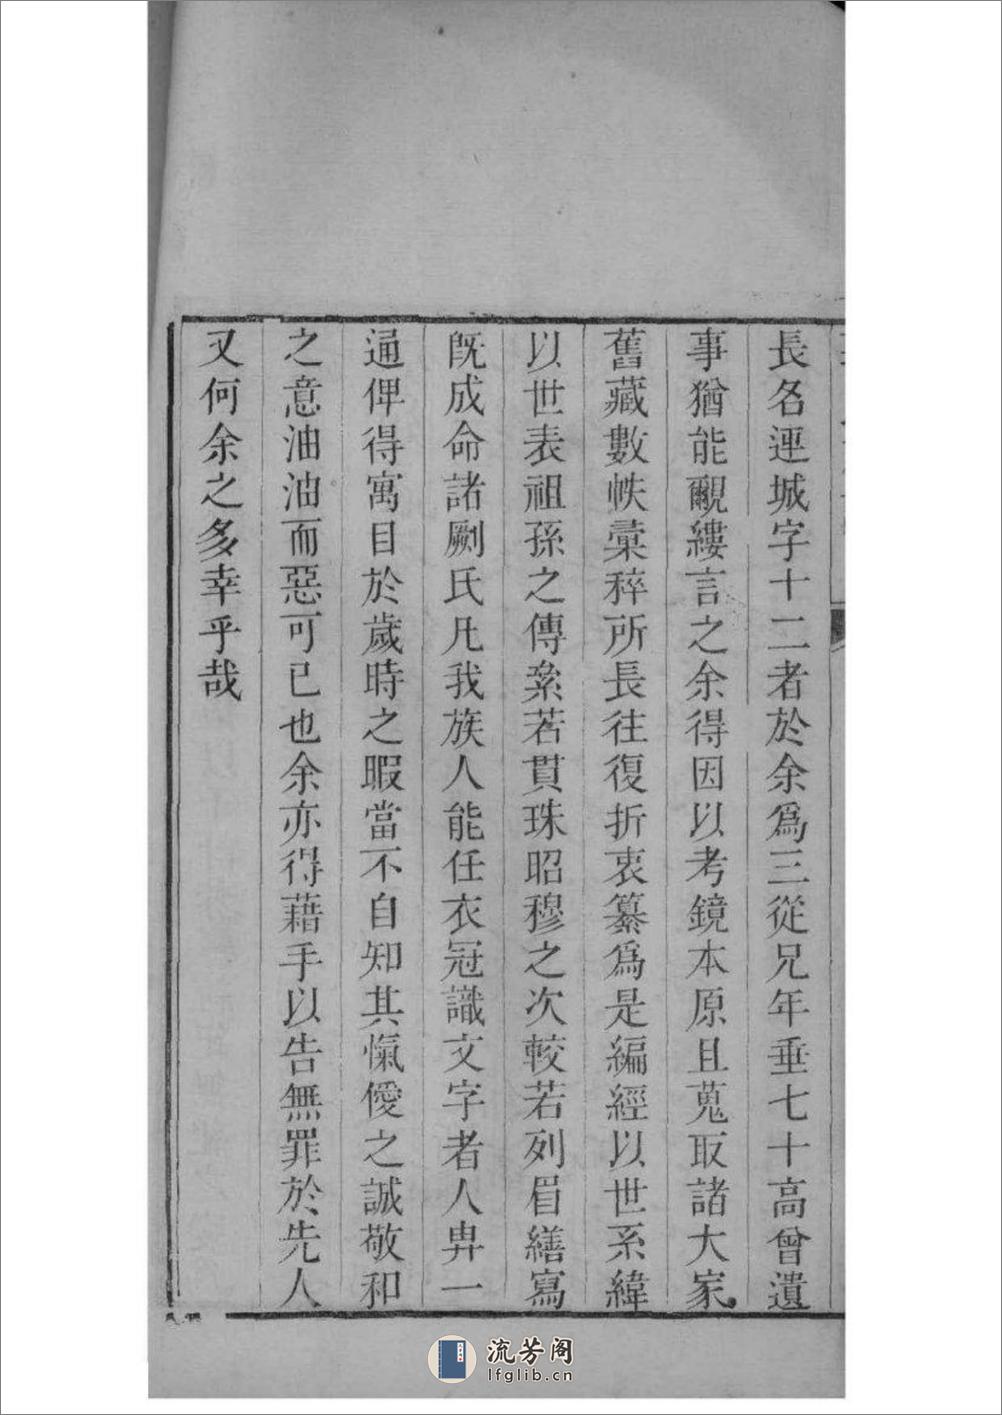 長名逕城字十二者於余爲三從兄年垂七十高曾遺
事猶能覼縷言之余得因以考鏡本原且蒐取諸大家
舊藏數帙彙稡所長往復折衷纂爲是編經以世系緯
以世表祖孫之傳系若貫珠昭穆之次較若列眉繕寫
旣成命諸劂氏凡我族人能任衣冠識文字者人畀一
通俾得寓目於歲時之暇當不自知其愾僾之誠敬和
之意油油而惡可已也余亦得藉手以告無罪於先人
又何余之多幸乎哉
流芳阁
lfglib.cn